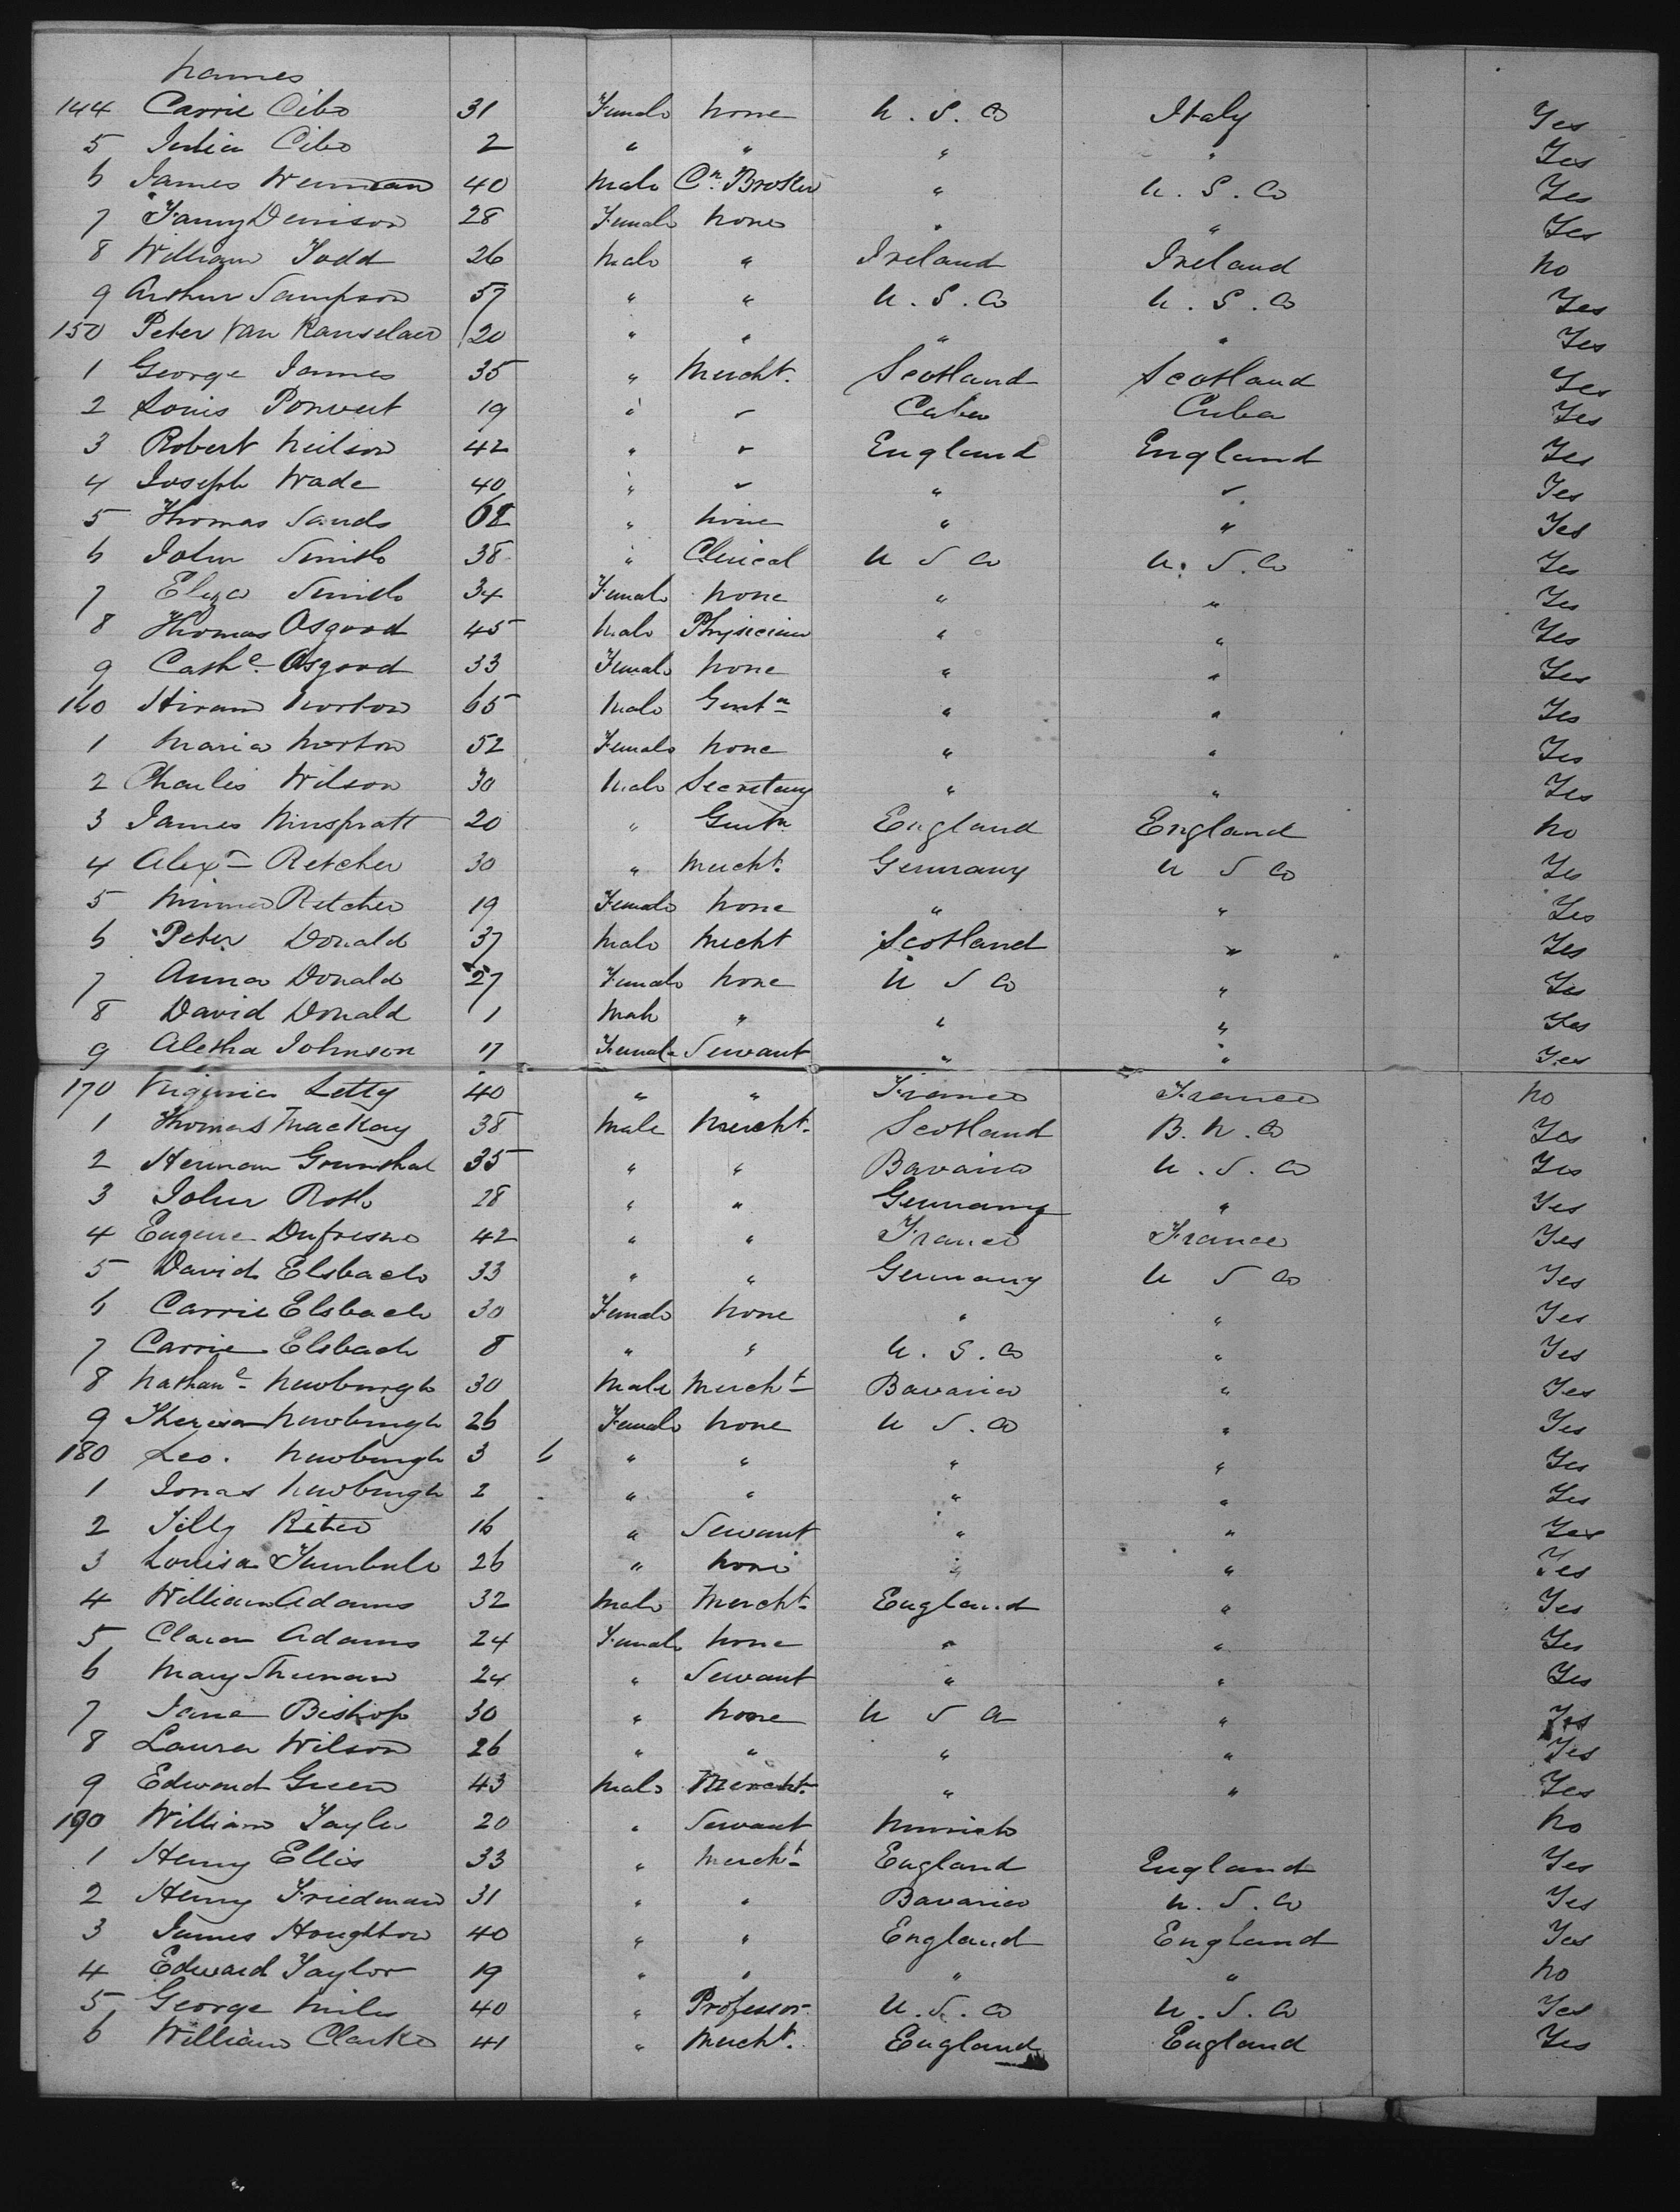 Names
144 Carrie Cibo 31 Female None U. S. A Italy Yes
5 Julia Cibo 2 " " " " Yes
6 James 40 Male Cn. Broker " U. S. A Yes
7 Fanny Denison 28 Female None " " Yes
8 William Todd 26 Male " Ireland Ireland No
9 Arthur Sampson 57 " " U. S. A U. S. A Yes
150 Peter Van Ranselaer 20 " " " " Yes
1 George James 35 " Mercht. Scotland Scotland Yes
2 Louis Ponvert 19 " " Cuba Cuba Yes
3 Robert Neilson 42 " " England England Yes
4 Joseph Wade 40 " " " " Yes
5 Thomas Sands 62 " None " " Yes
6 John Smith 38 " Clerical U S A U. S. A Yes
7 Eliza Smith 34 Female None " " Yes
8 Thomas Osgood 45 Male Physician " " Yes
9 Cathe. Osgood 33 Female None " " Yes
160 Hiram Norton 65 Male Gentn " " Yes
1 Maria Norton 52 Female None " " Yes
2 Charles Wilson 30 Male Secretary " " Yes
3 James 20 " Gentn England England No
4 Alexr Retcher 30 " Mercht. Germany U S A Yes
5 Minna Retcher 19 Female None " " Yes
6 Peter Donald 37 Male Mercht Scotland " Yes
7 Anna Donald 27 Female None U S A " Yes
8 David Donald 1 Male " " " Yes
9 Aletha Johnson 17 Female Servant " " Yes
170 Virginia Letty 40 " " France France No
1 Thomas MacKay 38 Male Mercht. Scotland B. N. A Yes
2 Herman 35 " " Bavaria U. S. A Yes
3 John Roth 28 " " Germany " Yes
4 Eugene Dufresne 42 " " France France Yes
5 David Elsbach 33 " " Germany U S A Yes
6 Carrie Elsbach 30 Female None " " Yes
7 Carrie Elsbach 8 " " U. S. A " Yes
8 Nathanl. Newburgh 30 Male Mercht Bavaria " Yes
9 Theresa Newburgh 26 Female None U S A " Yes
180 Leo. Newburgh 3 6 " " " " Yes
1 Jonas Newburgh 2 " " " " Yes
2 Tilly 16 " Servant " " Yes
3 Louisa 26 " None " " Yes
4 William Adams 32 Male Mercht. England " Yes
5 Clara Adams 24 Female None " " Yes
6 Mary 24 " Servant " " Yes
7 Jane Bishop 30 " None U S A " Yes
8 Laura Wilson 26 " " " " Yes
9 Edward Green 43 Male Mercht. " " Yes
190 William Tayler 20 " Servant Munich No
1 Henry Ellis 33 " Mercht England England Yes
2 Henry Friedman 31 " " Bavaria U. S. A Yes
3 James Houghton 40 " " England England Yes
4 Edward Taylor 19 " " " " No
5 George Miles 40 " Professor. U. S. A U. S. A Yes
6 William Clarke 41 " Mercht. England England Yes